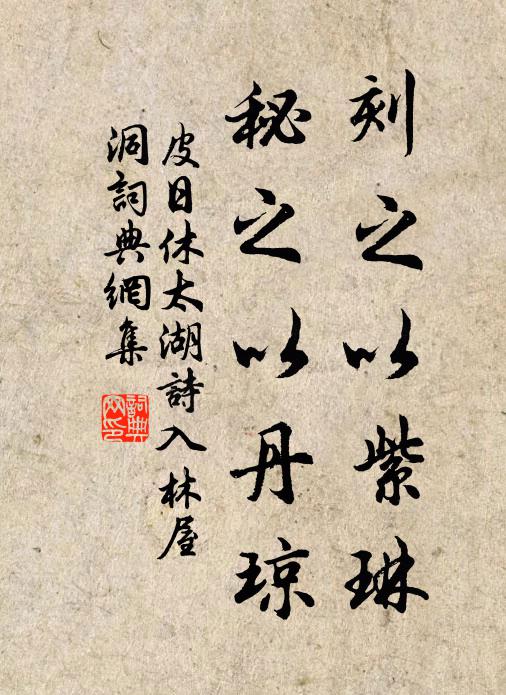 刻之以紫琳
秘之以丹琼
皮日休太湖詩入林屋
洞詞典網集
詞典网印